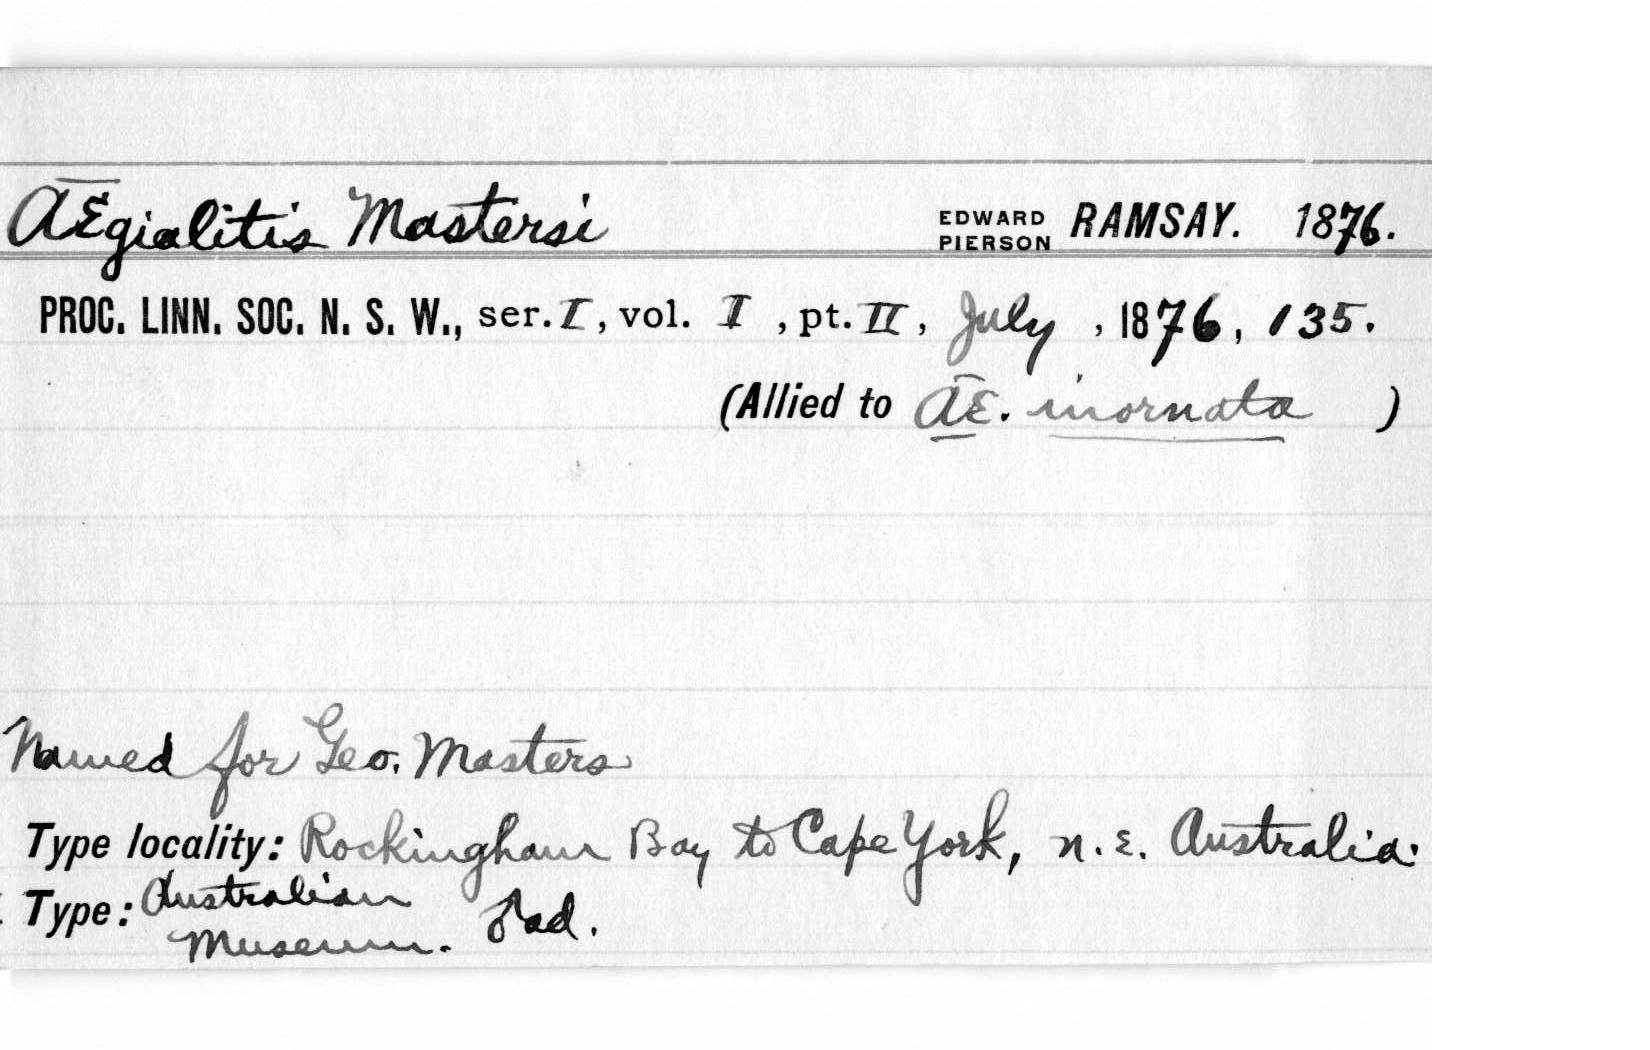 Ægialitis Mastersi EDWARD PIERSON RAMSAY. 1876.
PROC. LINN. SOC. N. S. W., ser. I, vol. I, pt. II, July, 1876, 135.
(Allied to Æ. inornata)
Named for Geo. Masters
Type locality: Rockingham Bay to Cape York, n.E. Australia.
Type: Australian Museum. ad.